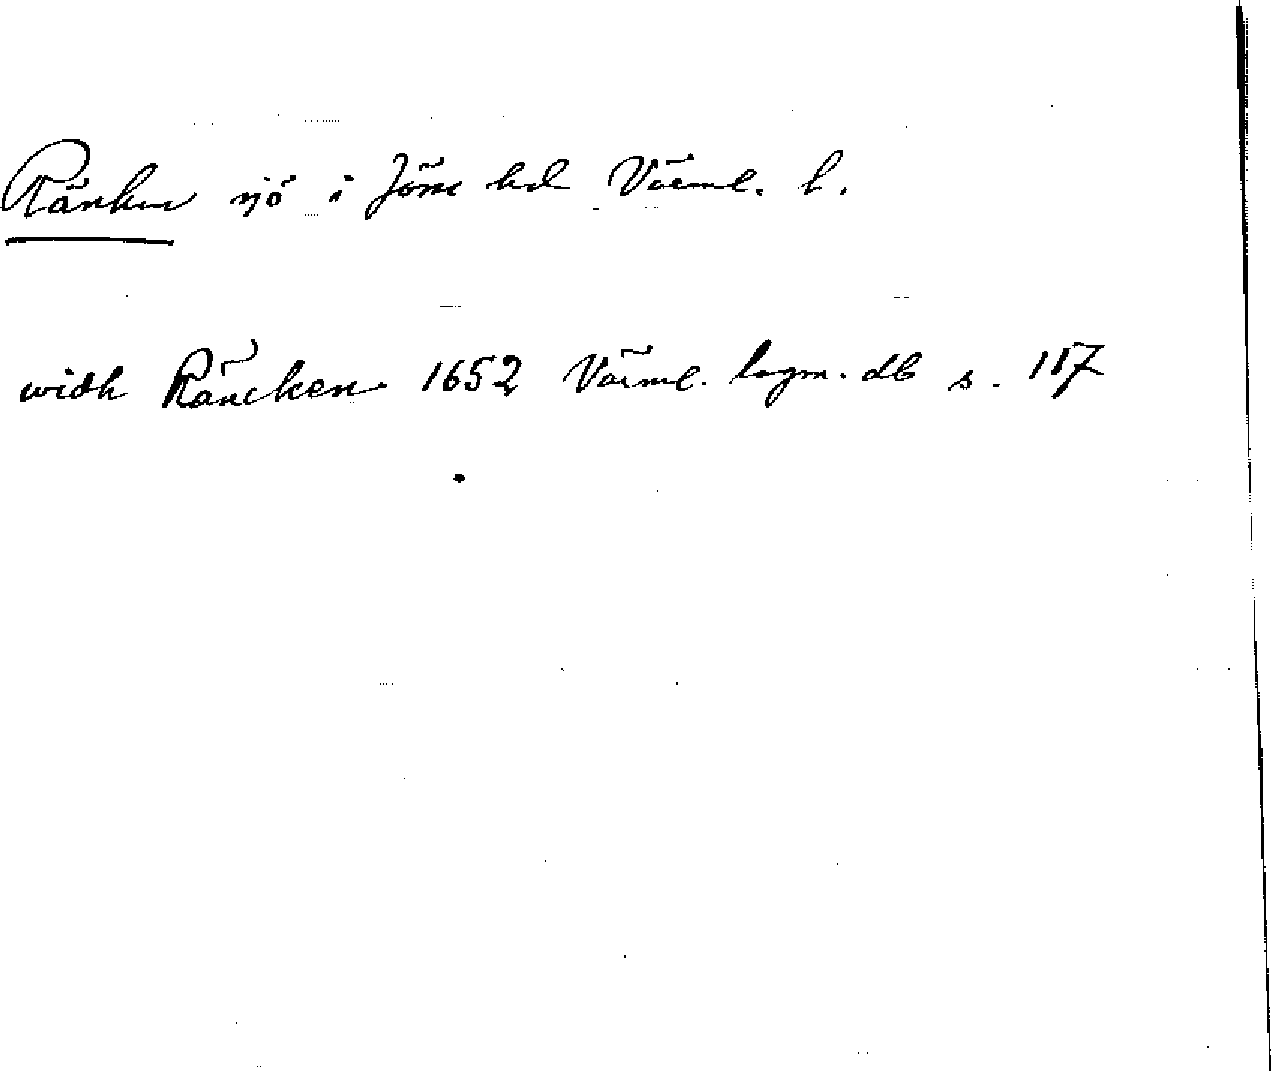 Ränken sjö i Jösse hd Värml. l.
widh Räncken 1652 Värml. lagm. db s. 117